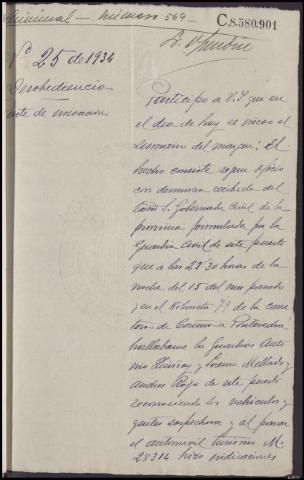 Criminal – número 569 –
C.8.580.901
Nº 25 de 1934
Desobediencia
Parte de incoación
Participo a V.S. que en
el dia de hoy se incoa el
sumario del margen; El
hecho consiste según oficio
con denuncia recibida del
Excmo S. Gobernador Civil de la
provincia formulada por la
Guardia Civil de este puesto
que a las 23'30 horas de la
noche del 15 del mes pasado
y en el Kilometro 79 de la carre
tera de Coruña a Pontevedra
hallabanse los Guardias
y Mellado y
Rojo de este puesto
reconociendo los vehiculos y
gentes sospechosas y al pasar
el automovil turismo M.
28314 hizo indicaciones